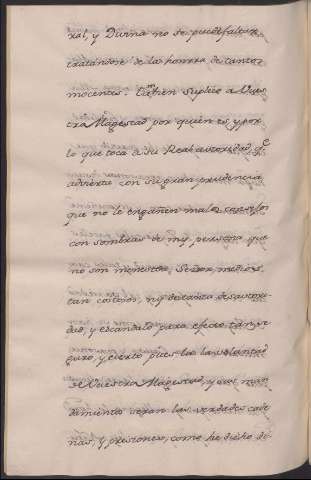 ral, y Divina no se puede faltar,
tratandose de la honrra de tantos
inocentes. Tambien suplico a Vues
tra Magestad por quien es, y por
lo que toca a su Real autoridad q.e
advierta con su gran prudencia
que no le engañen malos consejos
con sombras de my persona que
no son menester, Señor, medios
tan costosos, ny de tanta desautori
dad, y escandalo para efecto tan se
guro, y cierto pues la voluntad
de Vuestra Magestad, y sus man
damientos seran las verdades cade
nas, y presiones, como he dicho di-